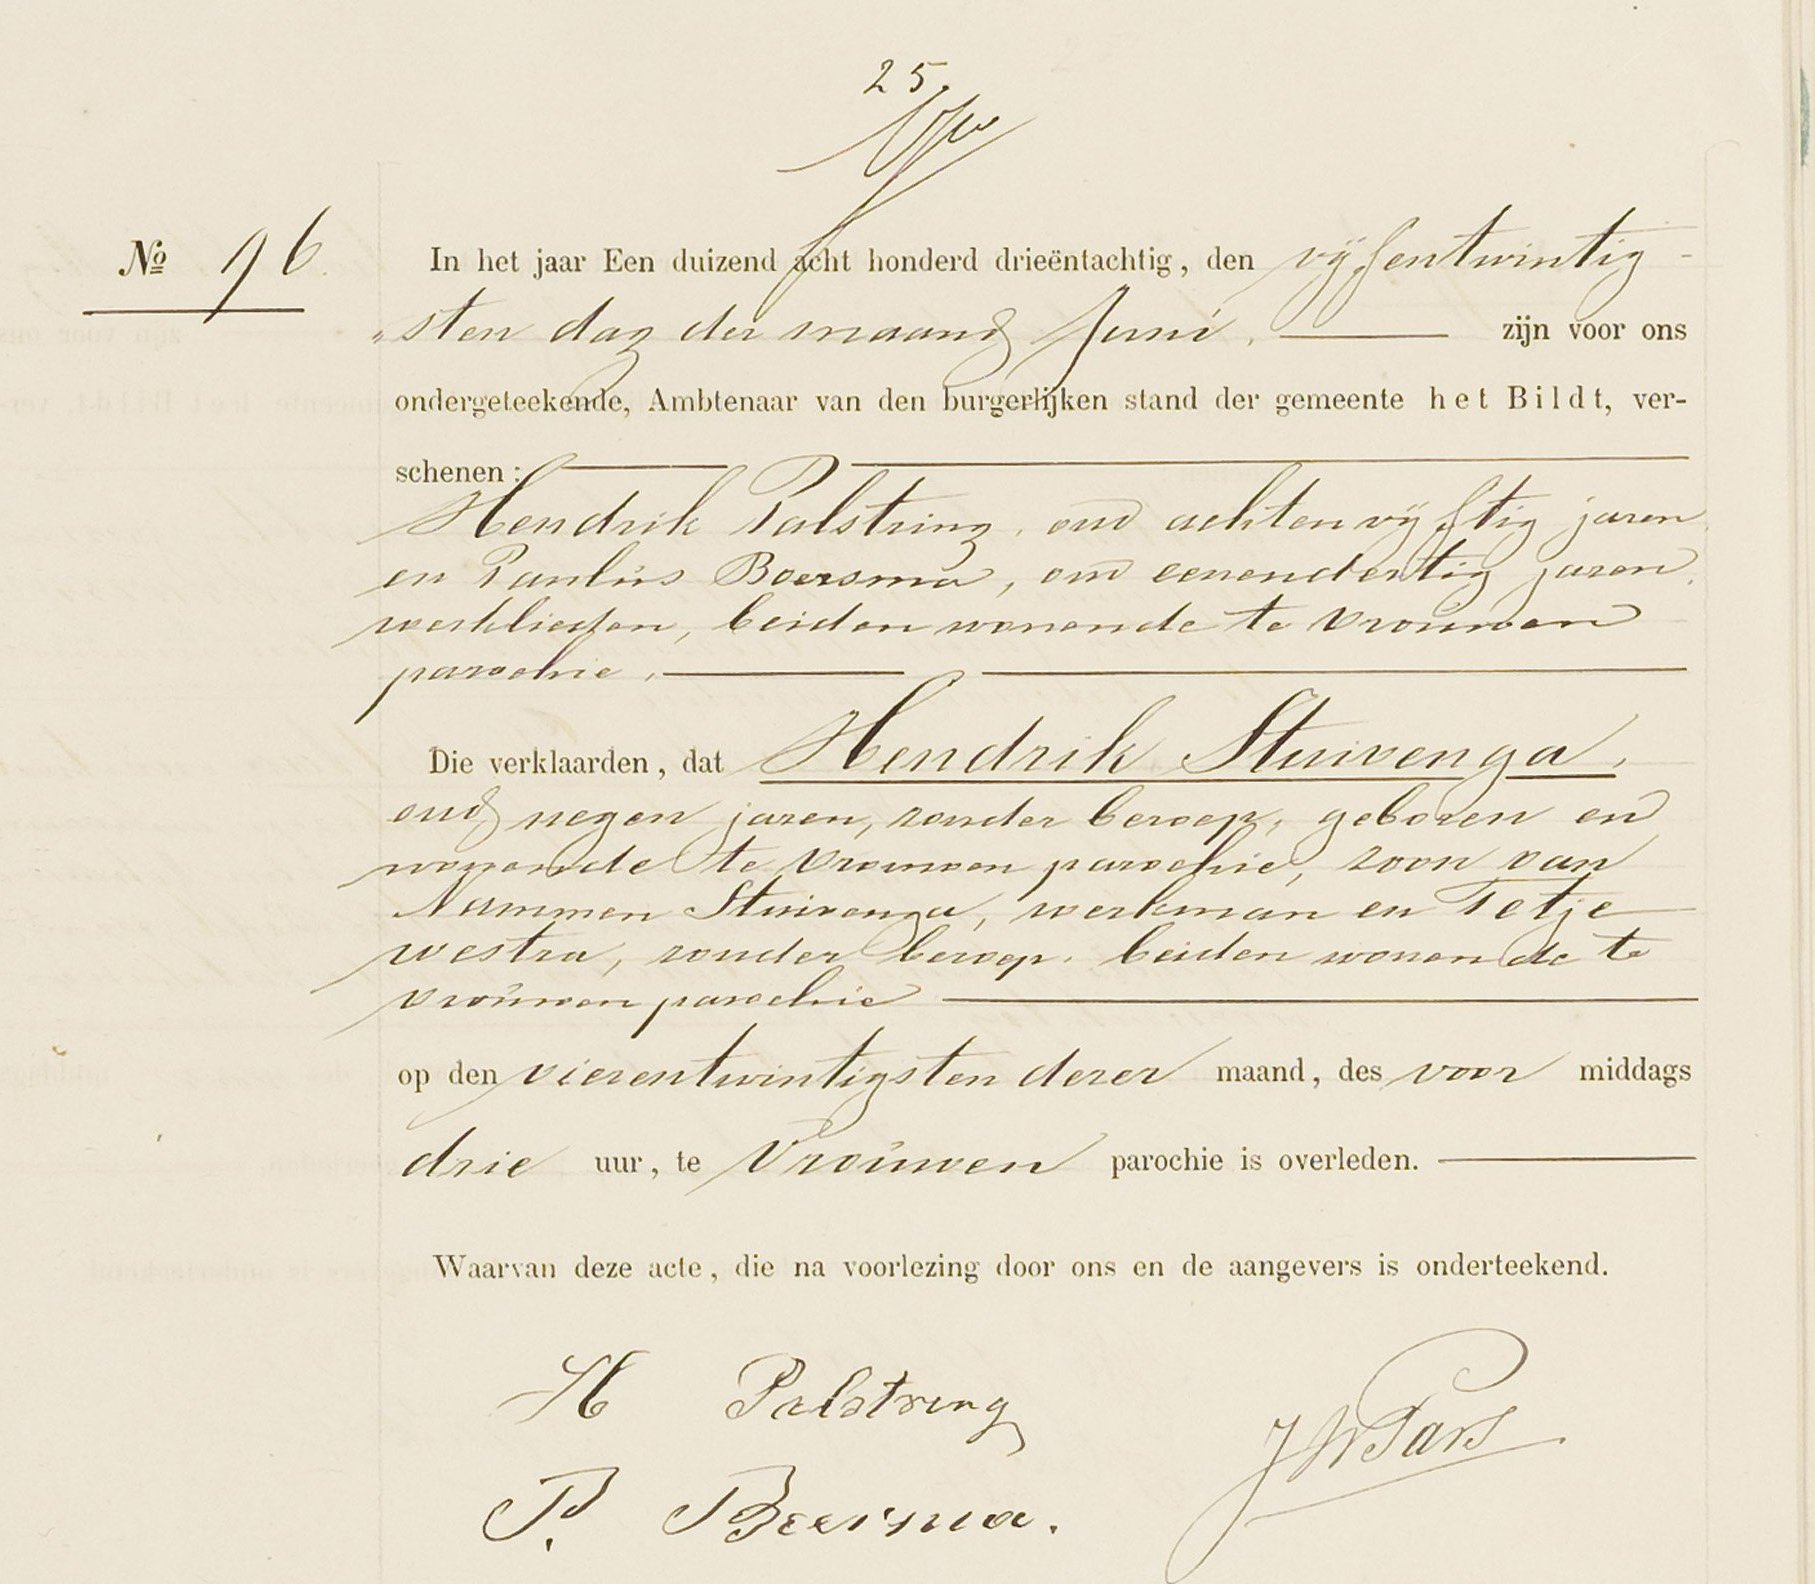 25.
No 96
In het jaar Een duizend acht honderd drieëntachtig, den vijfentwintig -
"sten dag der maand Juni. zijn voor ons
ondergeteekende, Ambtenaar van den burgerlijken stand der gemeente het Bildt, ver-
schenen:
Hendrik Palstring, oud achtenvijftig jaren
en Paulus Boersma, oud eenendertig jaren,
werklieden, beiden wonende te Vrouwen
parochie.
Die verklaarden, dat Hendrik Stuivenga,
oud negen jaren, zonder beroep, geboren en
wonende te Vrouwen parochie, zoon van
Nammen Stuivenga, werkman en Tetje
Westra, zonder beroep, beiden wonende te
Vrouwen parochie
op den vierentwintigsten dezer maand, des voor middags
drie uur, te Vrouwen parochie is overleden.
Waarvan deze acte, die na voorlezing door ons en de aangevers is onderteekend.
H Palstring
JW Pars
P. Boersma.